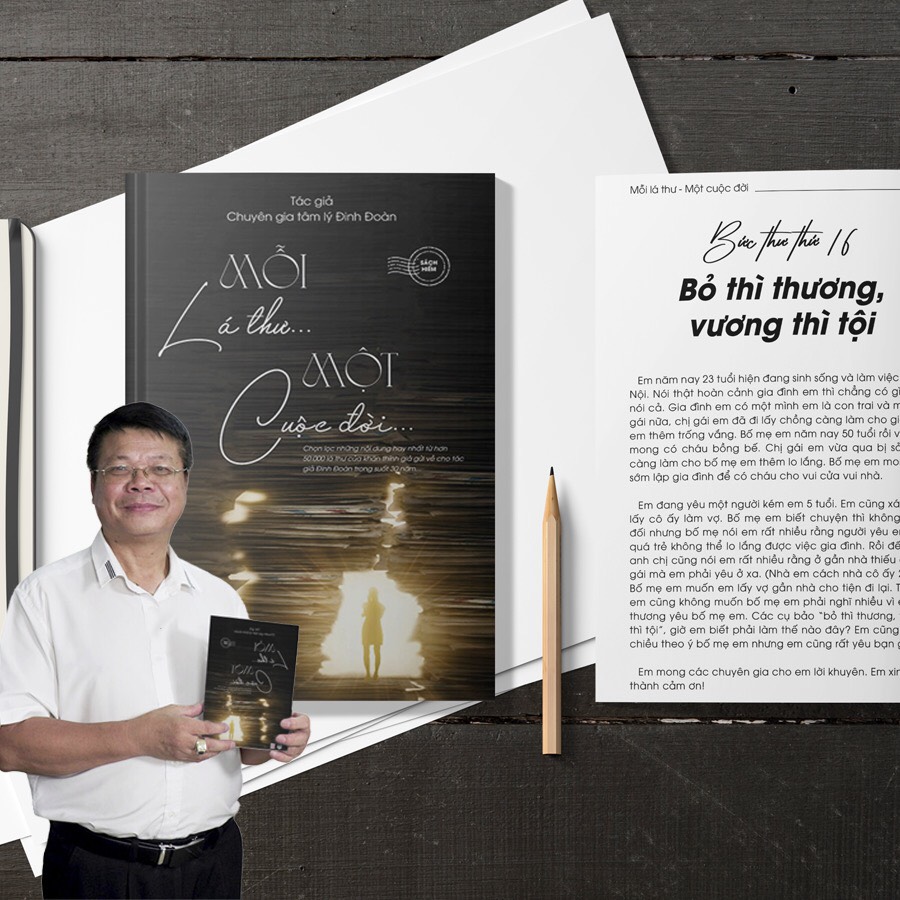 Tác giả
Chuyên gia tâm lý Đinh Đoàn
MỖI
Lá thư...
SÁCH
HIẾM
MỘT
Cuộc đời...
Chọn lọc những nội dung hay nhất từ hơn
50.000 lá thư của khán thính giả gửi về cho tác
giả Đinh Đoàn trong suốt 30 năm...
MỖI
Lá thư...
MỘT
Cuộc đời...
Mỗi lá thư - Một cuộc đời
Bức thư thứ 16
Bỏ thì thương,
vương thì tội
Em năm nay 23 tuổi hiện đang sinh sống và làm việc
Nội. Nói thật hoàn cảnh gia đình em thì chẳng có gì
nói cả. Gia đình em có một mình em là con trai và m
gái nữa, chị gái em đã đi lấy chồng càng làm cho gi
em thêm trống vắng. Bố mẹ em năm nay 50 tuổi rồi v
mong có cháu bồng bế. Chị gái em vừa qua bị sả
càng làm cho bố mẹ em thêm lo lắng. Bố mẹ em mo
sớm lập gia đình để có cháu cho vui cửa vui nhà.
Em đang yêu một người kém em 5 tuổi. Em cũng xá
lấy cô ấy làm vợ. Bố mẹ em biết chuyện thì không
đối nhưng bố mẹ nói em rất nhiều rằng người yêu e
quá trẻ không thể lo lắng được việc gia đình. Rồi đế
anh chị cũng nói em rất nhiều rằng ở gần nhà thiếu
gái mà em phải yêu ở xa. (Nhà em cách nhà cô ấy 2
Bố mẹ em muốn em lấy vợ gần nhà cho tiện đi lại. T
em cũng không muốn bố mẹ em phải nghĩ nhiều vì e
thương yêu bố mẹ em. Các cụ bảo “bỏ thì thương,
thì tội”, giờ em biết phải làm thế nào đây? Em cũng
chiều theo ý bố mẹ em nhưng em cũng rất yêu bạn g
Em mong các chuyên gia cho em lời khuyên. Em xin
thành cảm ơn!